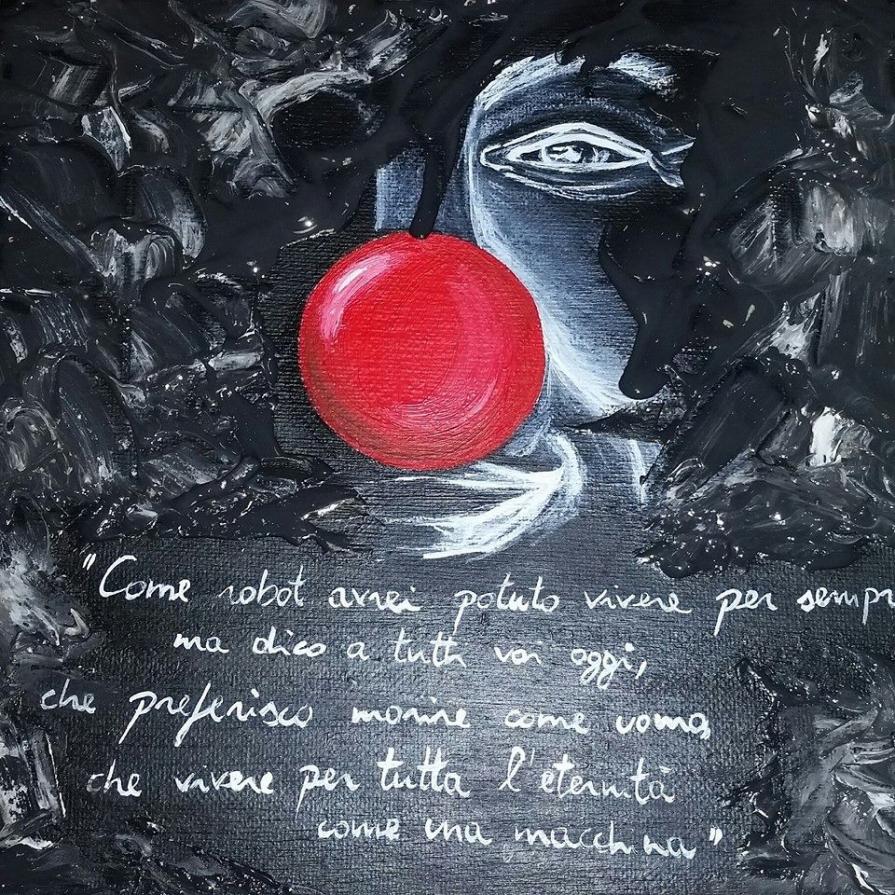 "Come robot avrei potuto vivere per sempr
ma dico a tutti voi oggi,
che preferisco morire come uomo,
che vivere per tutta l'eternità
come una macchina"